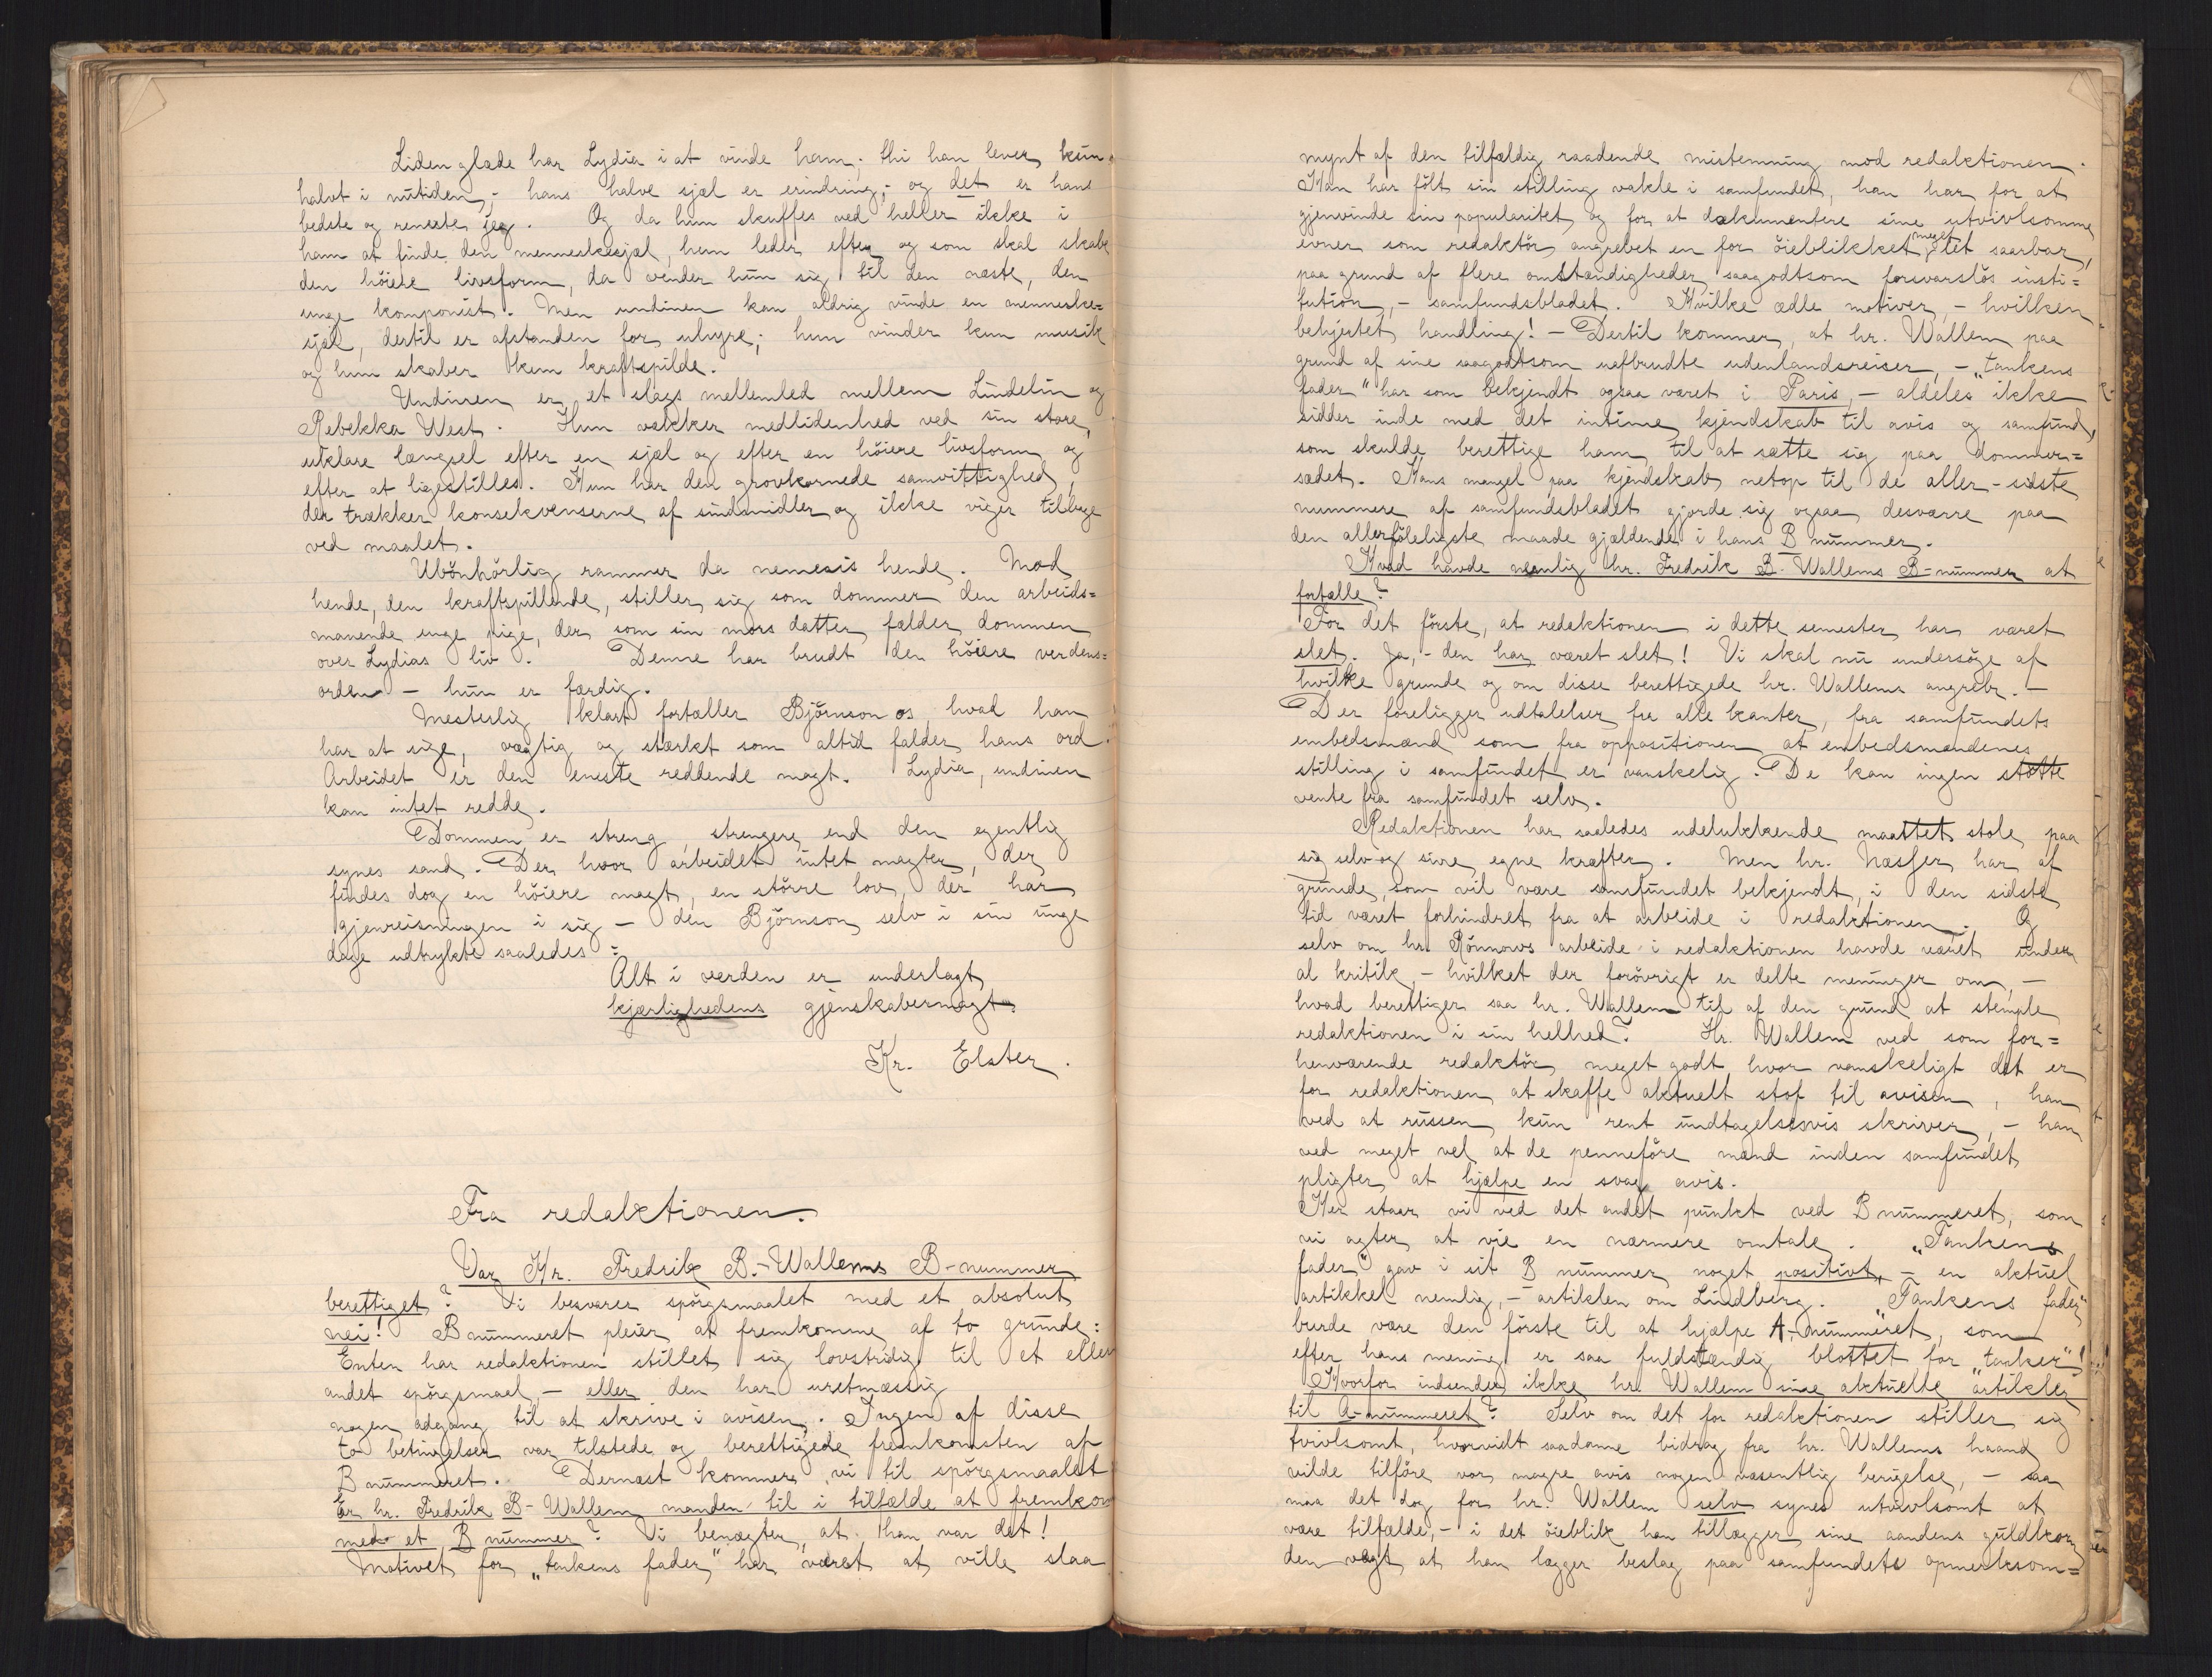 Liden glæde har Lydia i at vinde ham; thi han lever kun
halvt i nutiden, - hans halve sjæl er erindring, og det er hans
bedste og reneste jeg. Og da hun skuffes ved heller ikke i
ham at finde den menneskesjæl, hun leder efter og som skal skabe
den höiere livsform, da vender hun sig til den næste, den
unge komponist. Men undinen kan aldrig vinde en menneske=
sjæl, dertil er afstanden for uhyre; hun vinder kun musik
og hun skaber kun kraftspilde.
Undinen er et slags mellemled mellem Lindelin og
Rebekka West. Hun vækker medlidenhed ved sin store,
uklare længsel efter en sjæl og efter en höiere livsform og
efter at ligestilles. Hun har den grovkornede samvittighed,
der trækker konsekvenserne af sindsmidler og ikke viger tilbage
ved maalet.
Ubönhörlig rammer da nemesis hende. Mod
hende, den kraftspillende, stiller sig som dommer den arbeids=
manende unge pige, der som sin mors datter fælder dommen
over Lydias liv. Denne har brudt den höiere verdens=
orden - hun er færdig.
Mesterlig klart fortæller Björnson os, hvad han
har at sige, vægtig og stærkt som altid falder hans ord.
Arbeidet er den eneste reddende magt. Lydia, undinen
kan intet redde.
Dommen er streng, strengere end den egentlig
synes sand. Der, hvor arbeidet intet magter, der
findes dog en höiere magt, en större lov, der har
gjenreisningen i sig - den Björnson selv i sin unge
dage udtrykte saaledes:
Alt i verden er underlagt
kjærlighedens gjenskabermagt.
Kr. Elster.
Fra redaktionen.
Var Hr. Fredrik B.-Wallems B-nummer
berettiget? Vi besvarer spörgsmaalet med et absolut
nei! B nummeret pleier at fremkomme af to grunde:
Enten har redaktionen stillet sig lovstridig til et eller
andet spörgsmaal, - eller den har uretmæssig
nogen adgang til at skrive i avisen. Ingen af disse
to betingelser var tilstede og berettigede fremkomsten af
B nummeret. Dernæst kommer vi til spörgsmaalet
Er hr. Fredrik B-Wallem manden til i tilfælde at fremkom
med et B nummer? Vi benægter, at han var det!
Motivet for „tankens fader" har været at ville slaa
mynt af den tilfældig raadende mistemning mod redaktionen.
Han har fölt sin stilling vakle i samfundet, han har for at
gjenvinde sin popularitet og for at dokumentere sine utvivlsomme
evner som redaktör angrebet en for öieblikket meget let saarbar,
paa grund af flere omstændigheder saagodtsom forsvarslös insti=
tution, - samfundsbladet. Hvilke ædle motiver, - hvilken
behjertet handling! - Dertil kommer, at hr. Wallem paa
grund af sine saagodtsom uafbrudte udenlandsreiser, - „tankens
fader" har som bekjendt ogsaa været i Paris, - aldeles ikke
sidder inde med det intime kjendskab til avis og samfund,
som skulde berettige ham til at sætte sig paa dommer=
sædet. Hans mangel paa kjendskab netop til de aller-sidste
nummere af samfundsbladet gjorde sig ogsaa desværre paa
den allerföleligste maade gjældende i hans B nummer.
Hvad havde nemlig hr. Fredrik B-Wallems B-nummer at
fortælle?
For det förste, at redaktionen i dette semester har været
slet. Ja, - den har været slet! Vi skal nu undersöge af
hvilke grunde og om disse berettigede hr. Wallems angreb. -
Der foreligger udtalelser fra alle kanter, fra samfundets
embedsmænd som fra oppositionen at embedsmændenes
stilling i samfundet er vanskelig. De kan ingen stötte
vente fra samfundet selv.
Redaktionen har saaledes udelukkende maattet stole paa
sig selv og sine egne kræfter. Men hr. Næsfer har af
grunde, som vil være samfundet bekjendt, i den sidste
tid været forhindret fra at arbeide i redaktionen. Og
selv om hr. Rönnows arbeide i redaktionen havde været under
al kritik, - hvilket der forövrigt er delte meninger om, -
hvad berettiger saa hr. Wallem til af den grund at stemple
redaktionen i sin helhed? Hr. Wallem ved som for=
henværende redaktör meget godt, hvor vanskeligt det er
for redaktionen at skaffe aktuelt stof til avisen, han
ved at russen kun rent undtagelsesvis skriver, - han
ved meget vel at de penneföre mænd inden samfundet
pligter at hjælpe en svag avis.
Her staar vi ved det andet punkt ved B nummeret, som
vi agter at vie en nærmere omtale. „Tankens
fader" gav i sit B nummer noget positivt, - en aktuel
artikkel nemlig, - artiklen om Lindberg. „Tankens fader"
burde være den förste til at hjælpe A-nummeret, som
efter hans mening er saa fuldstændig blottet for „tanker"!
Hvorfor indsender ikke hr. Wallem sine aktuelle artikler
til A-nummeret? Selv om det for redaktionen stiller sig
tvivlsomt, hvorvidt saadanne bidrag fra hr. Wallems haand
vilde tilföre vor magre avis nogen væsentlig berigelse, - saa
maa det dog for hr. Wallem selv synes utvivlsomt at
være tilfælde, - i det öieblik han tillægger sine aandens guldkorn
den vægt at han lægger beslag paa samfundets opmerksom=